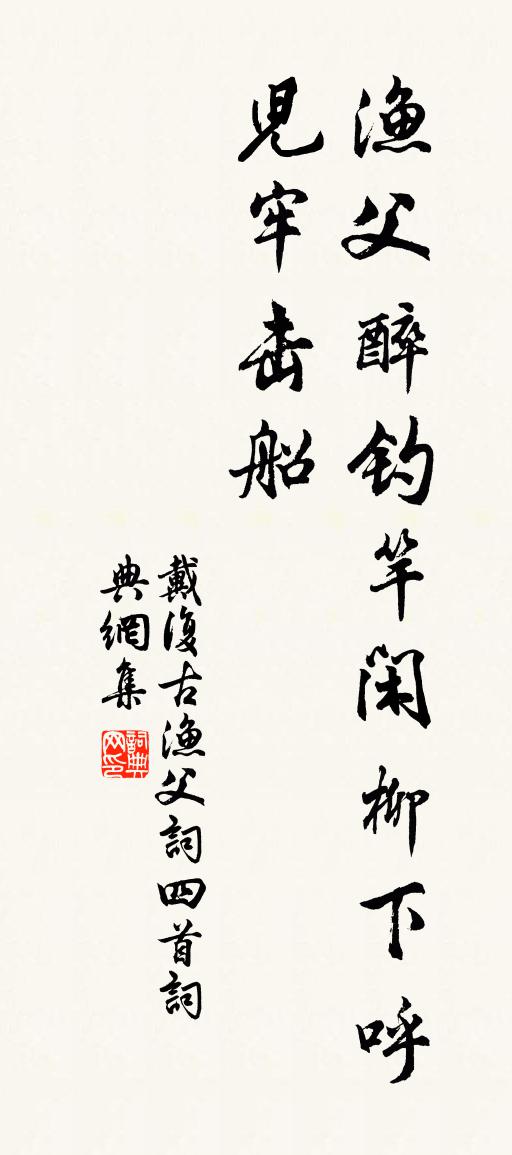 漁父醉釣竿閑柳下呼
兒牢击船
戴復古漁父詞四首詞
典網集
詞典网印